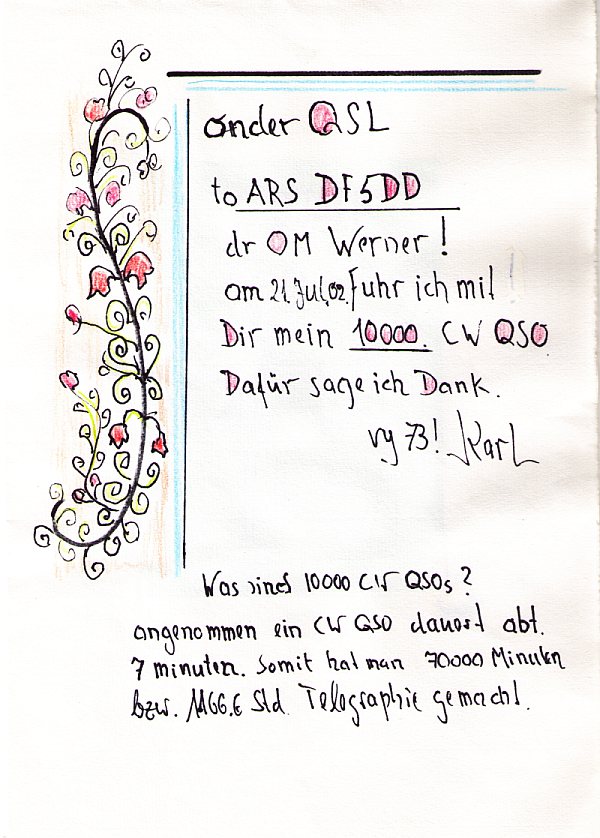 onder QSL
to ARS DF5DD
dr OM Werner!
am 21. Jul. 02. fuhr ich mit
Dir mein 10000. CW QSO
Dafür sage ich Dank.
vy 73! Karl
Was sind 10000 CW QSOs?
angenommen ein CW QSO dauert abt.
7 minuten. Somit hat man 70000 Minuten
bzw. 1166.6 Std. Telegraphie gemacht.